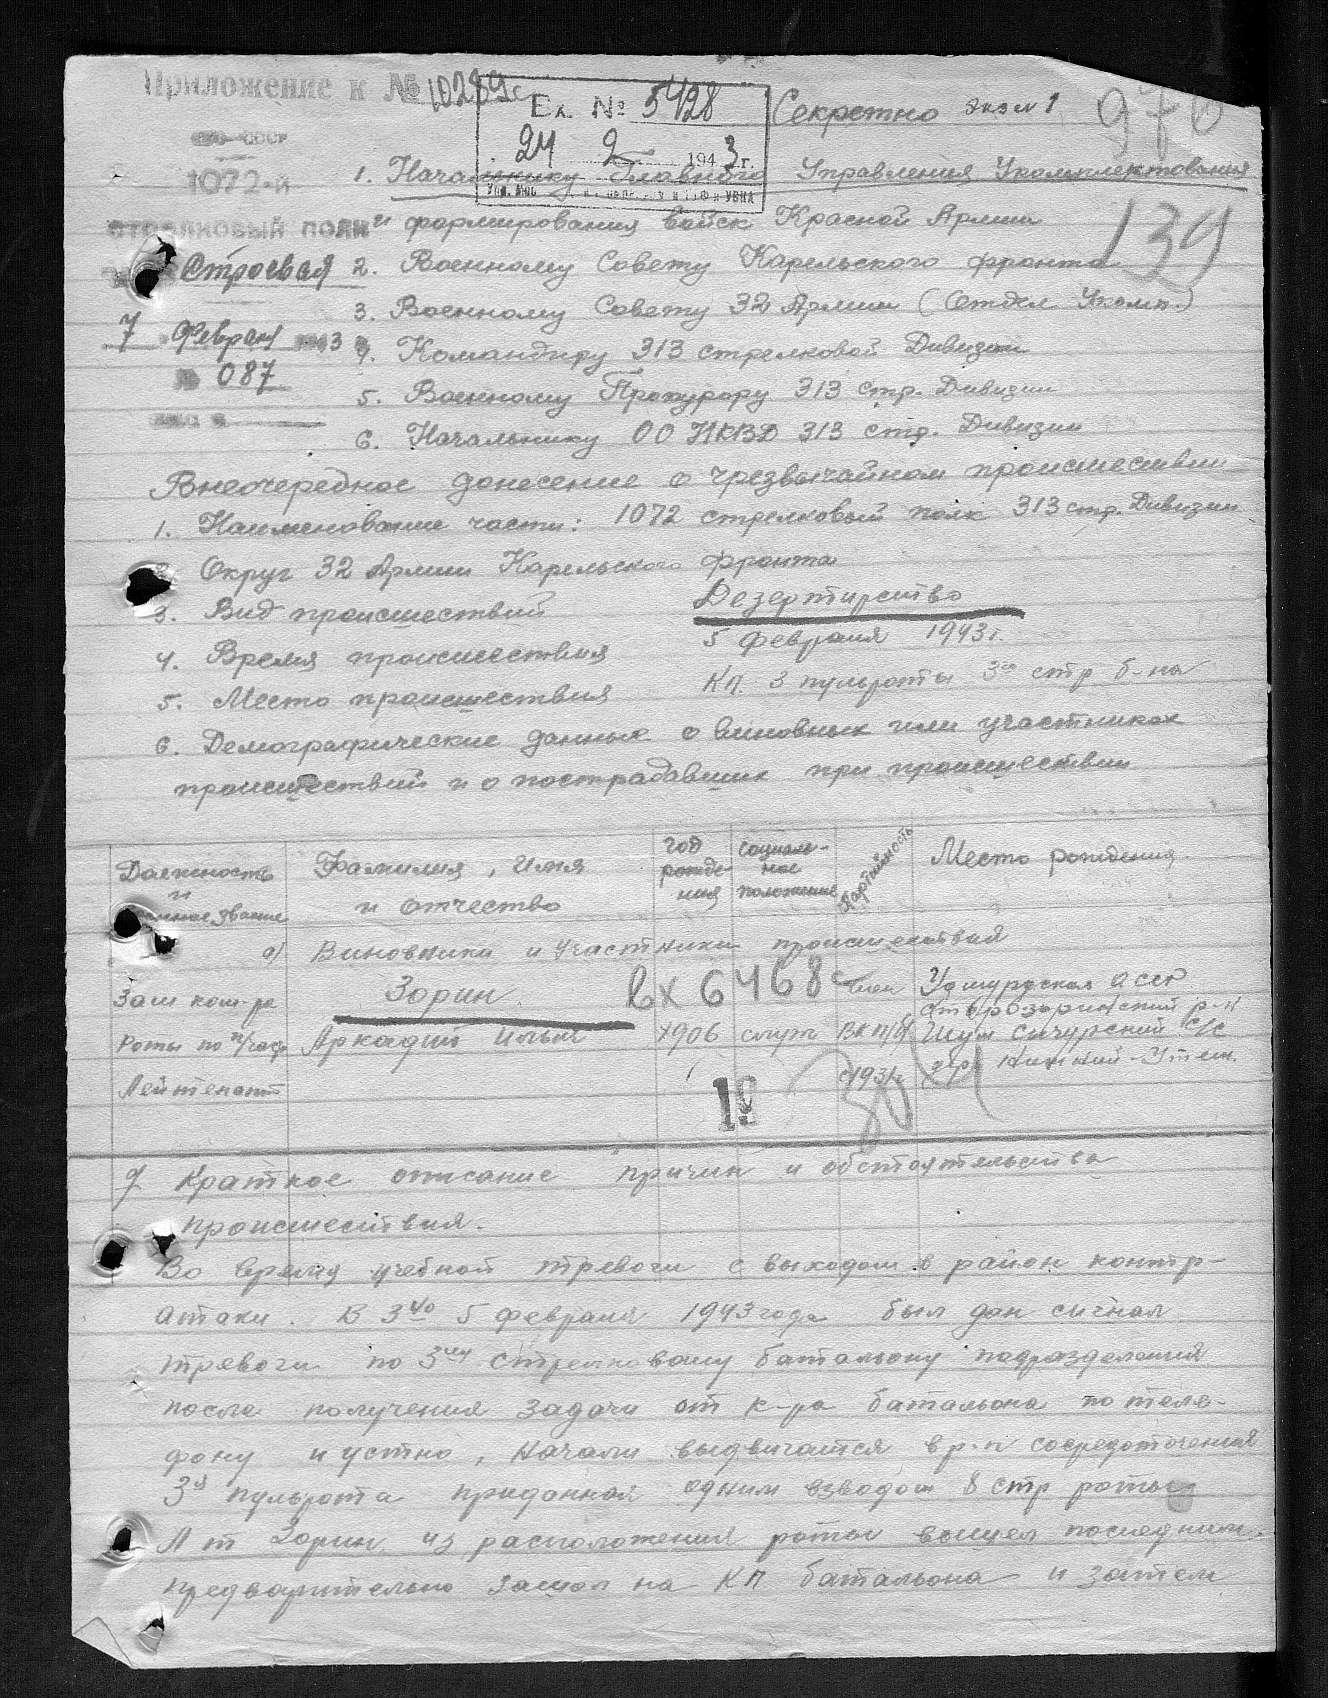 Приложение к № 10289с
Вх. № 5428
24 2 1943 г.
Секретно экз № 1
970
139
СССР
1072-й
СТРЕЛКОВЫЙ ПОЛК
Строевая
7 Февраля 1943
№ 087
1. Начальнику Главного Управления Укомплектования
и формирования войск Красной Армии
2. Военному Совету Карельского фронта
3. Военному Совету 32 Армии (Отдел Укомп.)
4. Командиру 313 стрелковой Дивизии
5. Военному Прокурору 313 стр. Дивизии
6. Начальнику ОО НКВД 313 стр. Дивизии
Внеочередное донесение о чрезвычайном происшествии
1. Наименование части: 1072 стрелковый полк 313 стр. Дивизии
2. Округ 32 Армии Карельского фронта
3. Вид происшествий Дезертирство
4. Время происшествия 5 февраля 1943 г.
5. Место происшествия КП. 3 пульроты 3го стр б-на
6. Демографические данные о виновных или участниках
происшествий и о пострадавших при происшествии
Должность и военное звание
Фамилия, Имя и отчество
год рождения
социальное положение
Партийность
Место рождения
а) Виновники и участники происшествий
вх 6468с
Зам ком-ра
Роты по п/час
Лейтенант
Зорин
Аркадий Ильич
1906
служ
член
ВКП/б/
с 1931г
Удмуртская АССР
р-н
с/с
дер. Нижний-
10
7 Краткое описание причин и обстоятельства
происшествия.
Во время учебной тревоги с выходом в район контр-
атаки. В 3 40 5 февраля 1943 года был дан сигнал
тревоги по 3му стрелковому батальону подразделения
после получения задачи от к-ра батальона по теле-
фону и устно, начали выдвигатся в р-н сосредоточения
3я пульрота приданная одним взводом 8 стр роты
Л-т Зорин из расположения роты вышел последним.
предварительно зашол на КП батальона и затем